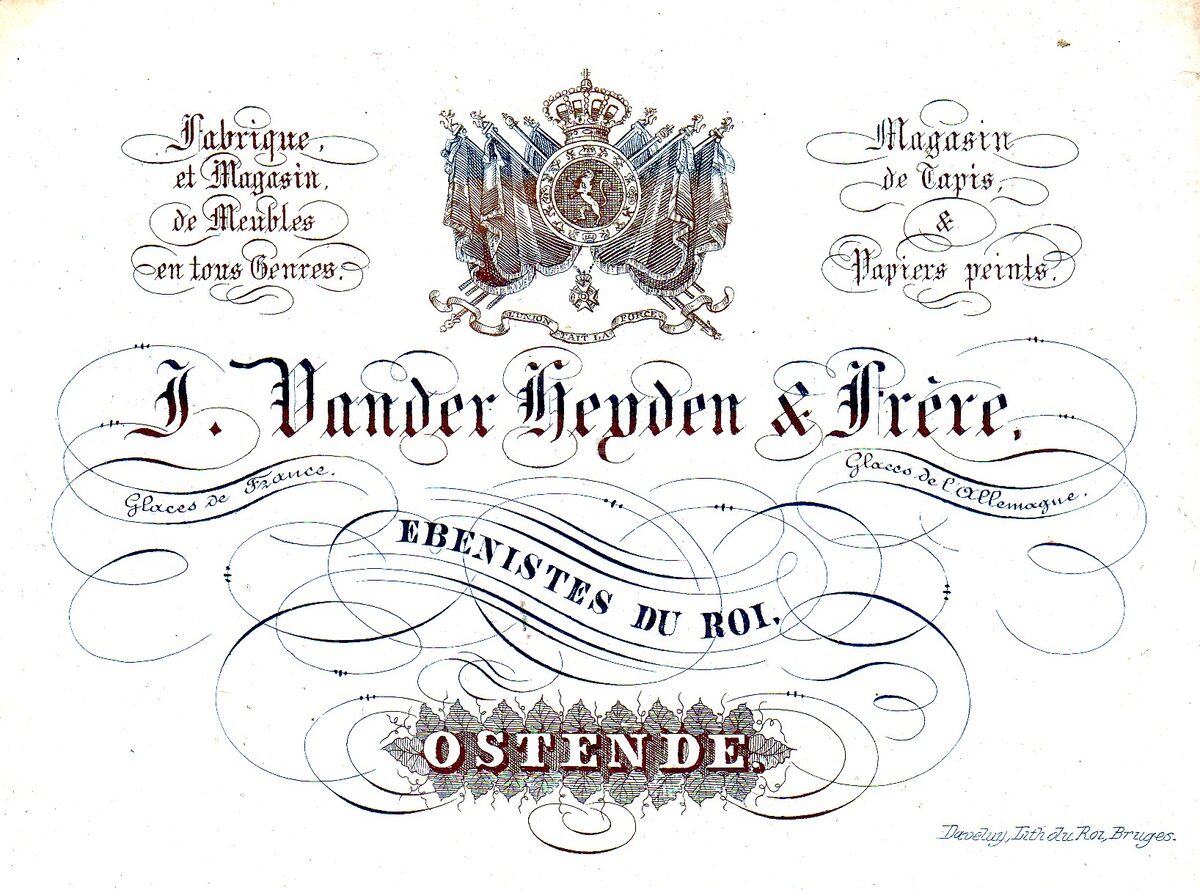 Fabrique,
et Magasin,
de Meubles
en tous Genres.
Magasin
de Tapis,
&
Papiers peints.
L'UNION FAIT LA FORCE
J. Vander Heyden & Frère,
Glaces de France.
Glaces de l'Allemagne.
EBENISTES DU ROI.
OSTENDE.
Daveluy, Lith du Roi, Bruges.